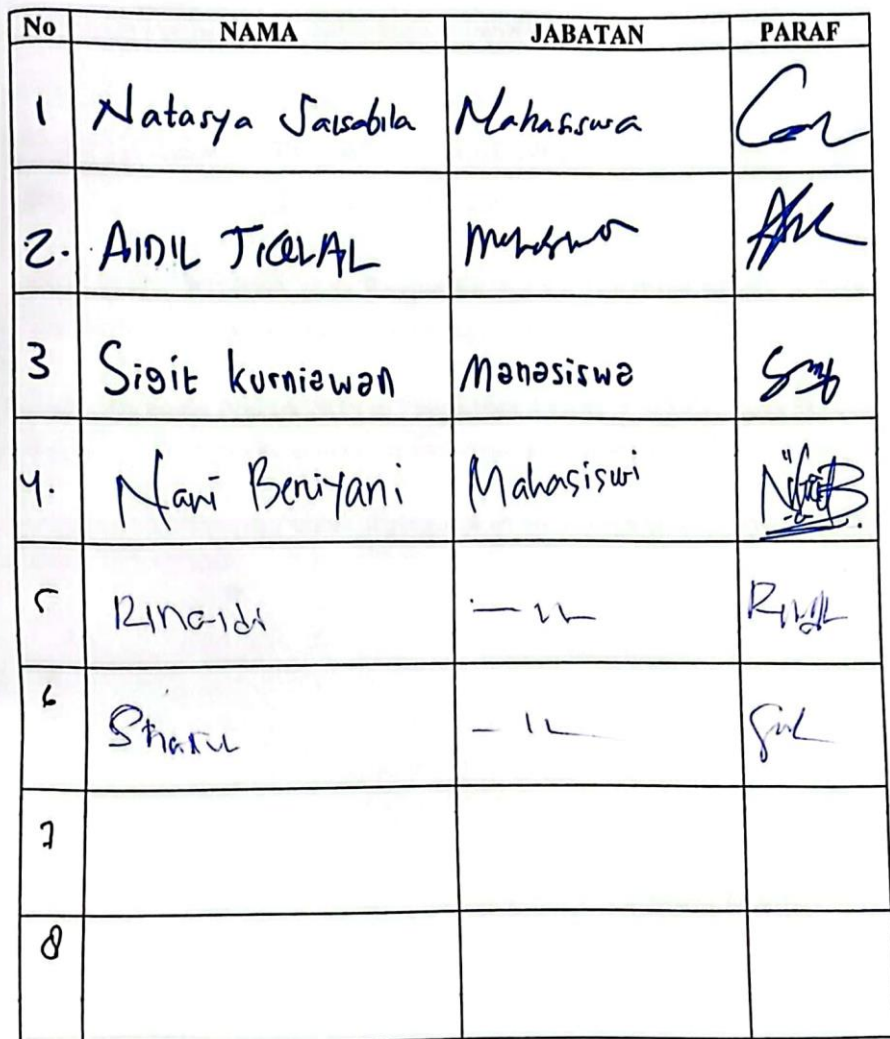 No NAMA JABATAN PARAF
1 Natasya Salsabila Mahasiswa
2. AIDIL Mahasiswa
3 Sigit kurniawan Mahasiswa
4. Nani Beriyani Mahasiswi
5 Rinaldi — 11 —
6 — 11 —
7
8